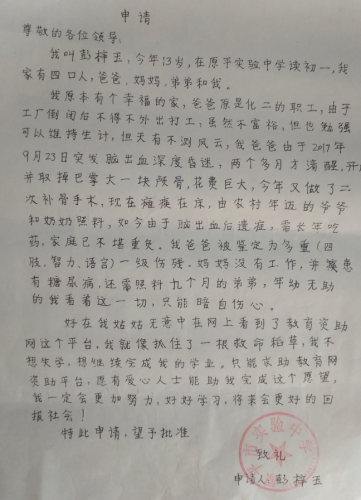 申请
尊敬的各位领导:
我叫彭梓玉,今年13岁,在原平实验中学读初一,我
家有四口人,爸爸、妈妈、弟弟和我。
我原本有个幸福的家,爸爸原是化二的职工,由于
工厂倒闭后不得不外出打工,虽然不富裕,但也勉强
可以维持生计,但天有不测风云,我爸爸由于2017年
9月23日突发脑出血深度昏迷,两个多月才清醒,开
并取掉巴掌大一块颅骨,花费巨大,今年又做了二
次补骨手术,现在瘫痪在床,由农村年迈的爷爷
和奶奶照料,如今由于脑出血后遗症,需长年吃
药,家庭已不堪重负。我爸爸被鉴定为多重(四
肢、智力、语言)一级伤残。妈妈没有工作,并患
有糖尿病,还需照料九个月的弟弟,年幼无助
的我看着这一切,只能暗自伤心。
好在我姑姑无意中在网上看到了教育资助
网这个平台,我就像抓住了一根救命稻草,我不
想失学,想继续完成我的学业。只能求助教育网
资助平台,愿有爱心人士能助我完成这个愿望,
我一定会更加努力,好好学习,将来会更好的回
报社会!
特此申请,望予批准
致礼
申请人:彭梓玉
市实验中学